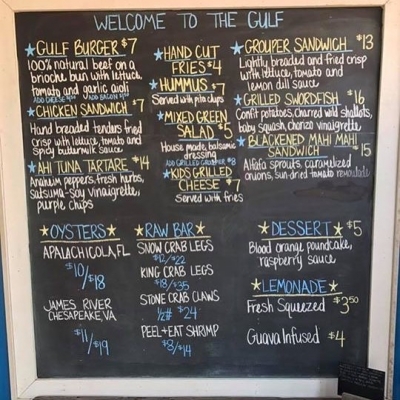 WELCOME TO THE GULF
GULF BURGER $7
100% natural beef on a
brioche bun with lettuce,
tomato and garlic aioli
ADD CHEESE ADD BACON
CHICKEN SANDWICH $7
Hand breaded tenders fried
crisp with lettuce, tomato and
spicy buttermilk sauce
AHI TUNA TARTARE $14
Anaheim peppers, fresh herbs,
satsuma-soy vinaigrette,
purple chips
HAND CUT
FRIES $4
HUMMUS $7
Served with pita chips
MIXED GREEN
SALAD $5
House made, balsamic
dressing
ADD GRILLED GROUPER $8
KIDS GRILLED
CHEESE $7
Served with fries
GROUPER SANDWICH $13
Lightly breaded and fried crisp
with lettuce, tomato and
lemon dill sauce
GRILLED SWORDFISH $16
Confit potatoes, charred wild shallots,
baby squash, chorizo vinaigrette
BLACKENED MAHI MAHI
SANDWICH $15
Alfalfa sprouts, caramelized
onions, sun-dried tomato remoulade
OYSTERS
APALACHICOLA, FL
$10/$18
JAMES RIVER
CHESAPEAKE, VA
$11/$19
RAW BAR
SNOW CRAB LEGS
$12/$22
KING CRAB LEGS
$18/$35
STONE CRAB CLAWS
1/2# $24
PEEL+EAT SHRIMP
$8/$14
DESSERT $5
Blood orange poundcake,
raspberry sauce
LEMONADE
Fresh Squeezed $3.50
Guava Infused $4